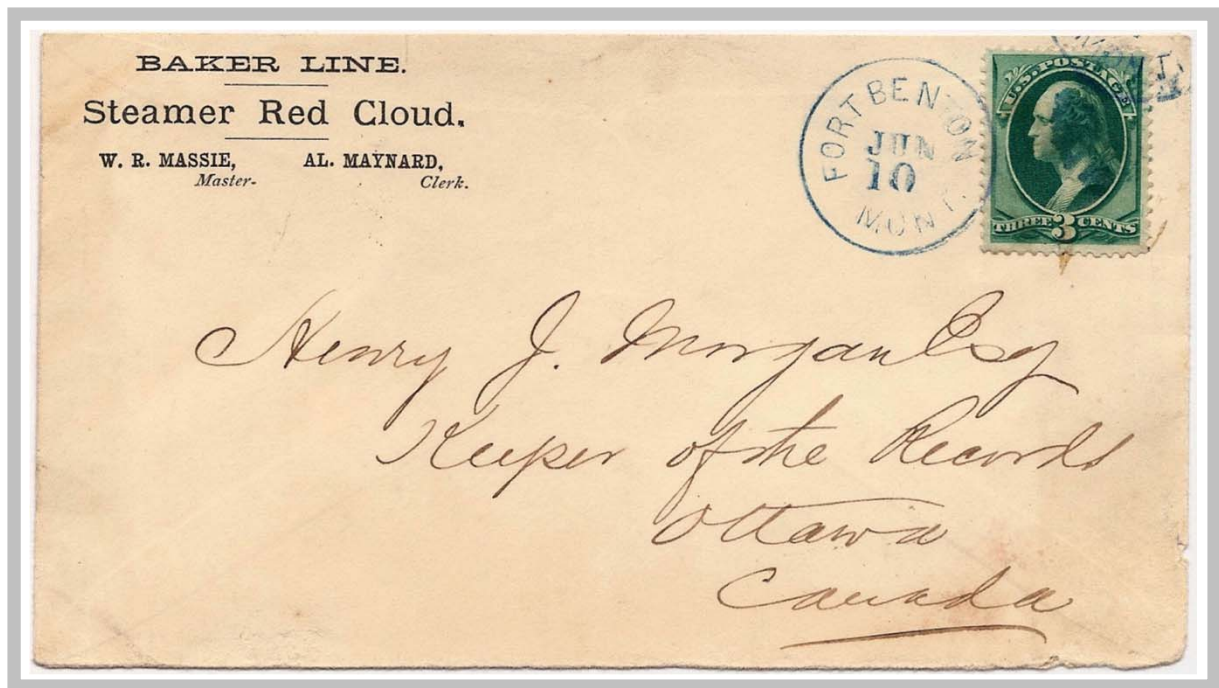 BAKER LINE.
Steamer Red Cloud.
W. R. MASSIE, AL. MAYNARD,
Master- Clerk.
FORT BENTON
JUN
10
MONT.
MONT
U.S. POSTAGE
THREE 3 CENTS
Henry J. Morgan Esq
Keeper of the Records
Ottawa
Canada